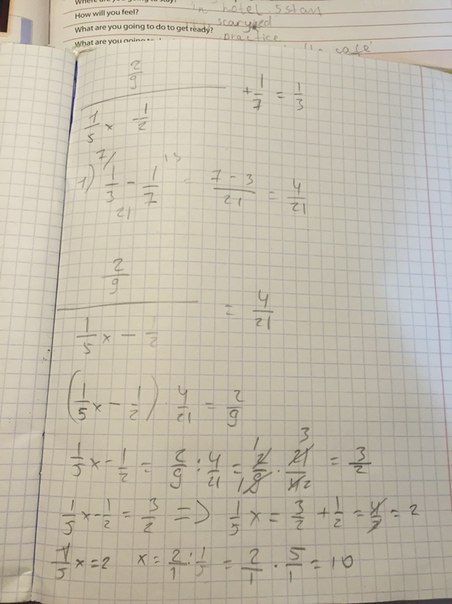 hotel 5 stars
How will you feel?
What are you going to do to get ready?
practice
What are you going
café
2/9 / (1/5 x 1/2) + 1/7 = 1/3
1) 1/3 - 1/7 = (7 - 3)/21 = 4/21
2/9 / (1/5 x - 1/2) = 4/21
(1/5 x - 1/2) · 4/21 = 2/9
1/5 x - 1/2 = 2/9 : 4/21 = 2/9 · 21/4 = 3/2
1/5 x - 1/2 = 3/2 => 1/5 x = 3/2 + 1/2 = 4/2 = 2
1/5 x = 2 x = 2/1 : 1/5 = 2/1 · 5/1 = 10